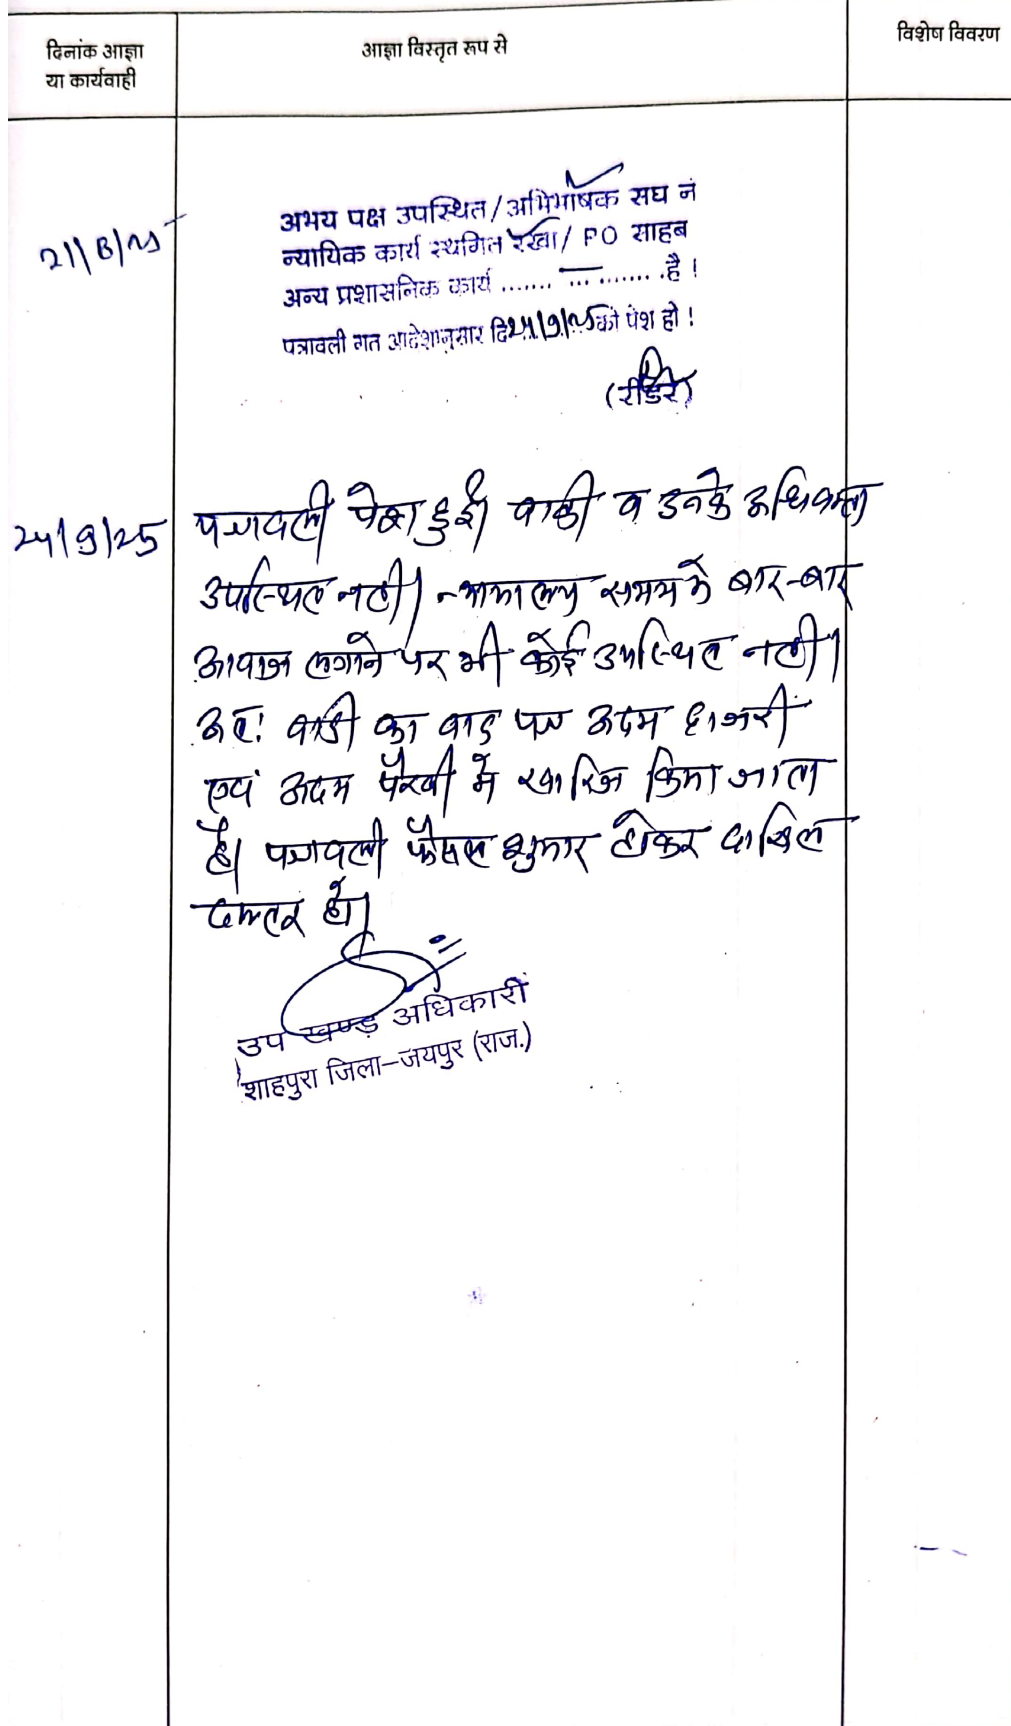 दिनांक आज्ञा
या कार्यवाही
आज्ञा विस्तृत रूप से
विशेष विवरण
अभय पक्ष उपस्थित/अभिभाषक सघ नं
न्यायिक कार्य स्थगित रखा/ PO साहब
अन्य प्रशासनिक कार्य ....... ... ....... .है !
पत्रावली गत आदेशानुसार दि 24/9/25 को पेश हो !
(रीडर)
24/9/25
पत्रावली पेश हुई। वादी व उनके अधिवक्ता
उपस्थित नही। न्यायालय समय मे बार-बार
आवाज लगाने पर भी कोई उपस्थित नही।
अतः वादी का वाद पत्र अदम हाजरी
एवं अदम पैरवी मे खारिज किया जाता
है। पत्रावली फैसल शुमार होकर दाखिल
दफ्तर हो।
उप खण्ड़ अधिकारी
शाहपुरा जिला-जयपुर (राज.)